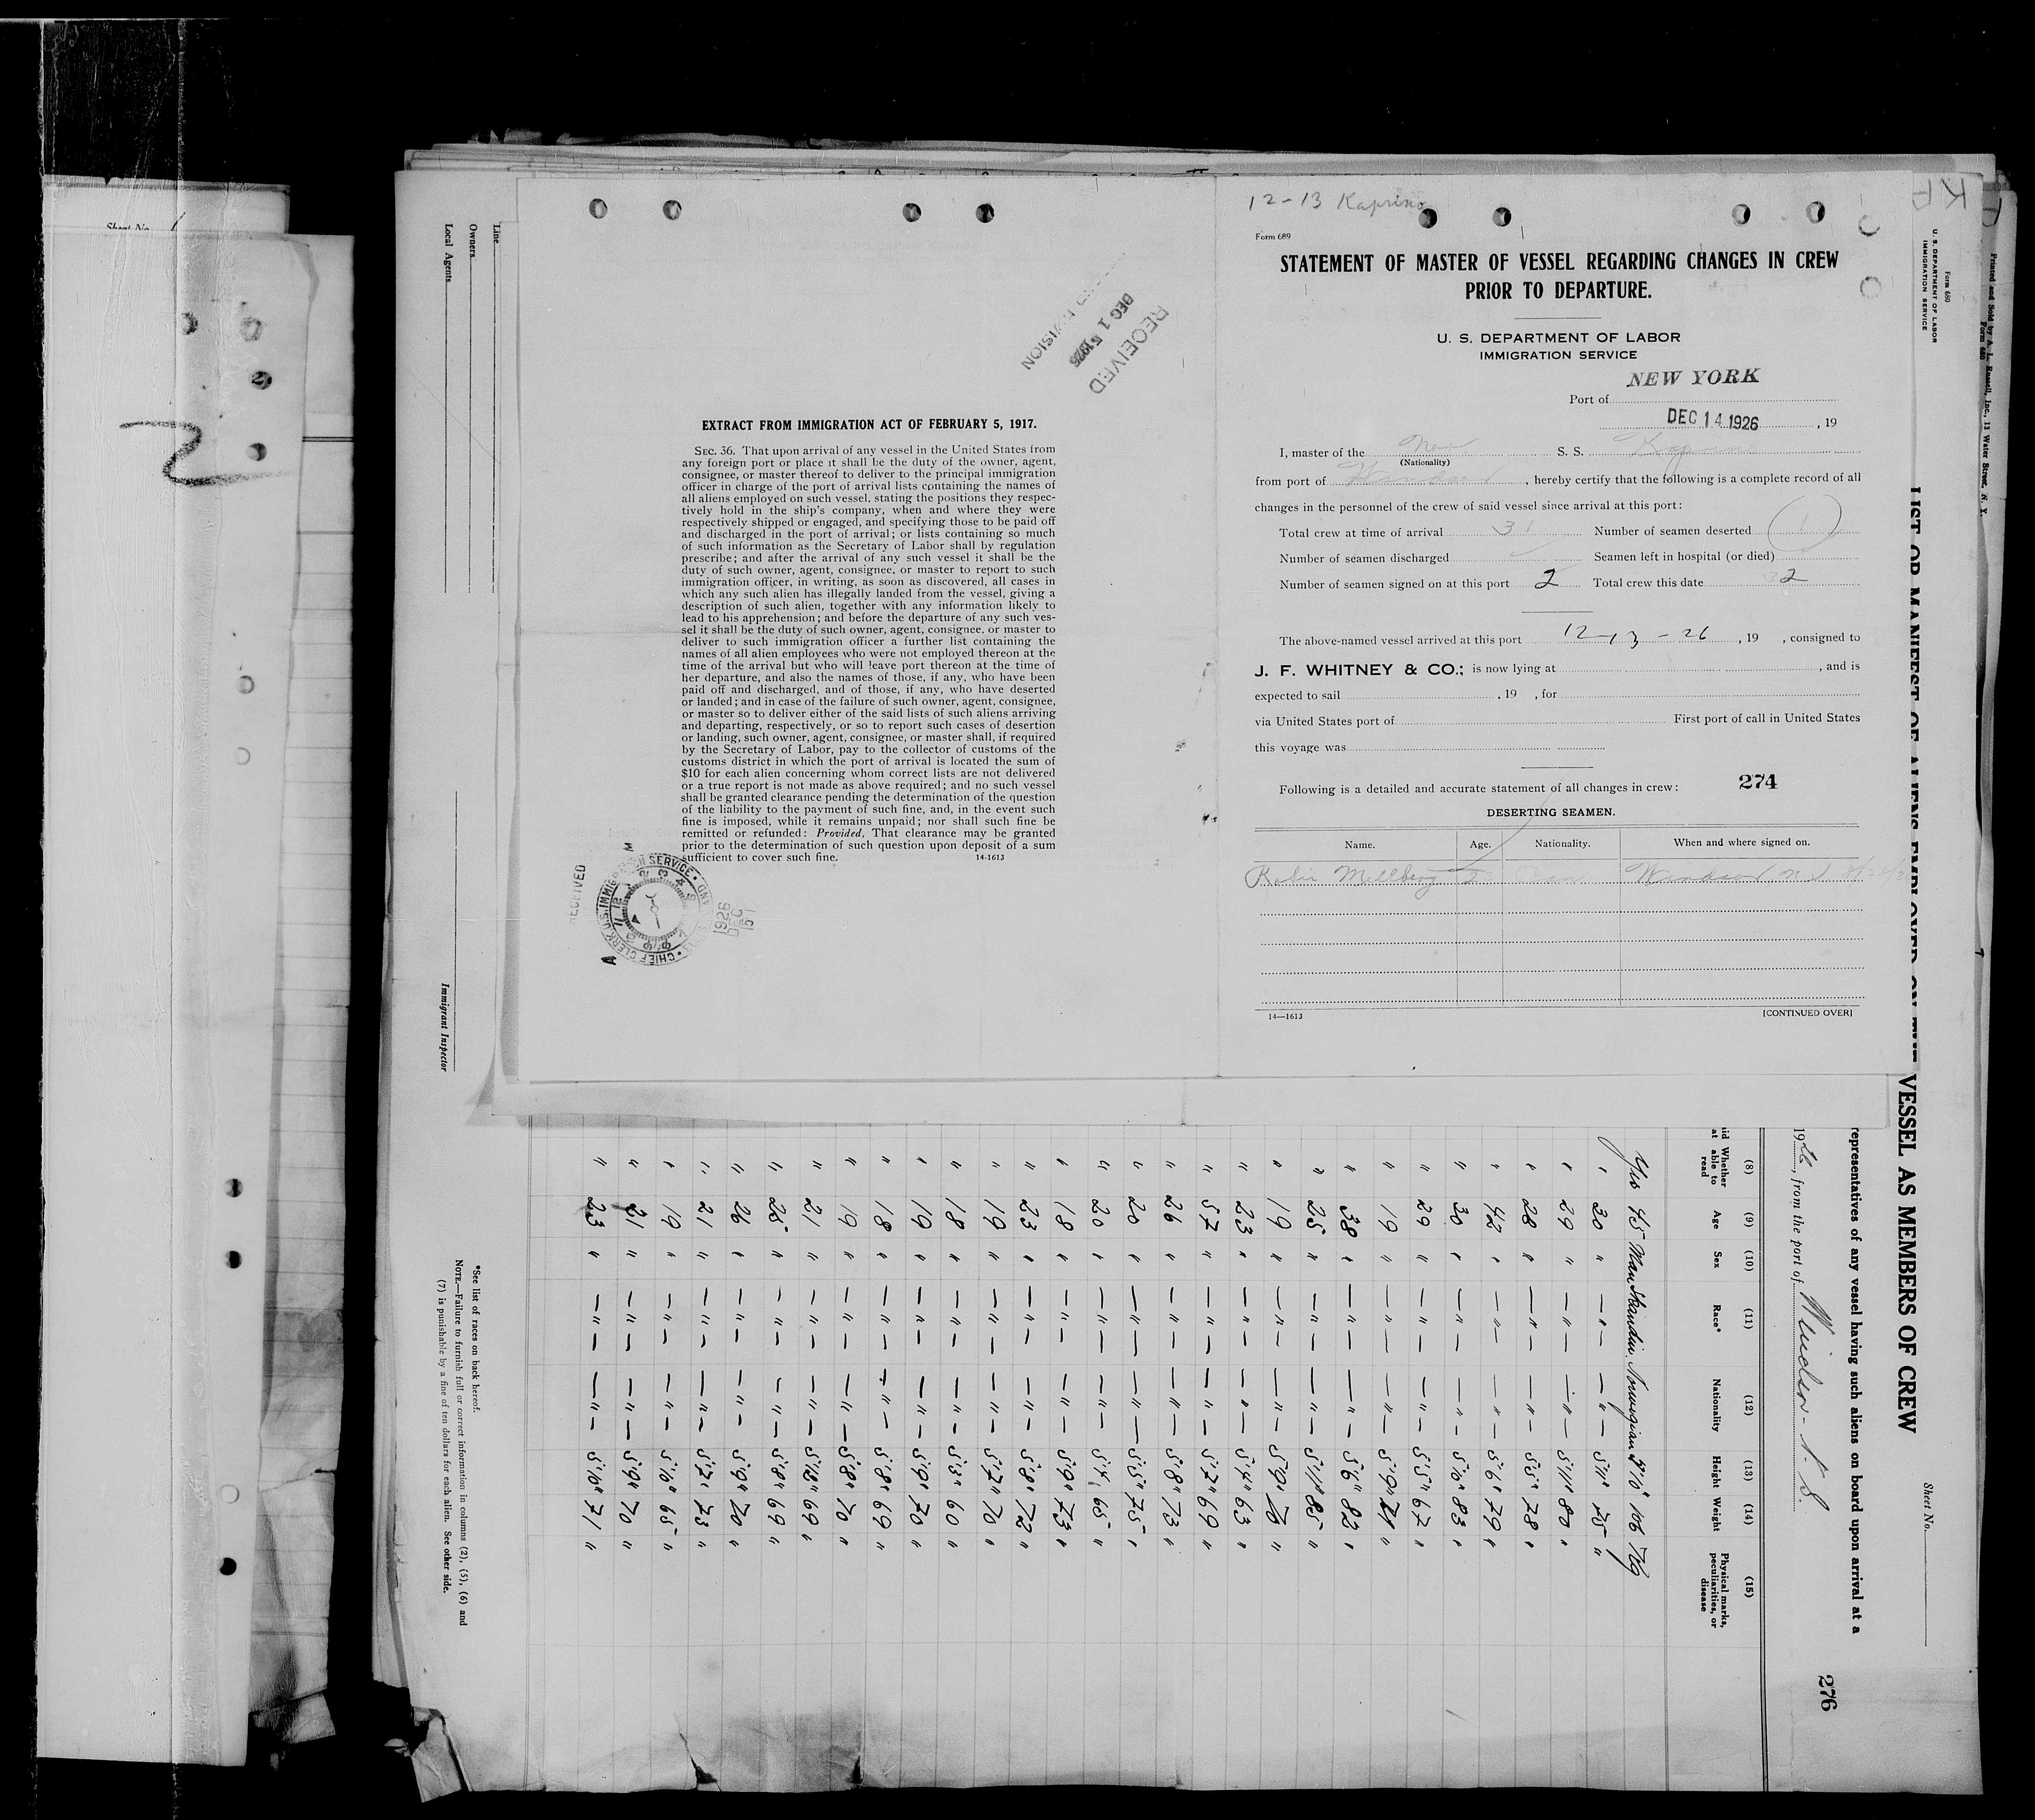 Sheet No.
2
Line
Owners
Local Agents
Immigrant Inspector
RECEIVED
DEC 15 1926
DIVISION
EXTRACT FROM IMMIGRATION ACT OF FEBRUARY 5, 1917.
SEC. 36. That upon arrival of any vessel in the United States from
any foreign port or place it shall be the duty of the owner, agent,
consignee, or master thereof to deliver to the principal immigration
officer in charge of the port of arrival lists containing the names of
all aliens employed on such vessel, stating the positions they respec-
tively hold in the ship's company, when and where they were
respectively shipped or engaged, and specifying those to be paid off
and discharged in the port of arrival; or lists containing so much
of such information as the Secretary of Labor shall by regulation
prescribe; and after the arrival of any such vessel it shall be the
duty of such owner, agent, consignee, or master to report to such
immigration officer, in writing, as soon as discovered, all cases in
which any such alien has illegally landed from the vessel, giving a
description of such alien, together with any information likely to
lead to his apprehension; and before the departure of any such ves-
sel it shall be the duty of such owner, agent, consignee, or master to
deliver to such immigration officer a further list containing the
names of all alien employees who were not employed thereon at the
time of the arrival but who will leave port thereon at the time of
her departure, and also the names of those, if any, who have been
paid off and discharged, and of those, if any, who have deserted
or landed; and in case of the failure of such owner, agent, consignee,
or master so to deliver either of the said lists of such aliens arriving
and departing, respectively, or so to report such cases of desertion
or landing, such owner, agent, consignee, or master shall, if required
by the Secretary of Labor, pay to the collector of customs of the
customs district in which the port of arrival is located the sum of
$10 for each alien concerning whom correct lists are not delivered
or a true report is not made as above required; and no such vessel
shall be granted clearance pending the determination of the question
of the liability to the payment of such fine, and, in the event such
fine is imposed, while it remains unpaid; nor shall such fine be
remitted or refunded: Provided, That clearance may be granted
prior to the determination of such question upon deposit of a sum
sufficient to cover such fine. 14-1613
RECEIVED
CHIEF CLERK U.S. IMMIGRATION SERVICE
1926 DEC 15
12-13 Kaprino
Form 689
STATEMENT OF MASTER OF VESSEL REGARDING CHANGES IN CREW
PRIOR TO DEPARTURE.
U. S. DEPARTMENT OF LABOR
IMMIGRATION SERVICE
NEW YORK
Port of
DEC 14 1926 , 19
I, master of the Nor S. S. Kaprino
(Nationality)
from port of Windsor , hereby certify that the following is a complete record of all
changes in the personnel of the crew of said vessel since arrival at this port:
Total crew at time of arrival 31 Number of seamen deserted 1
Number of seamen discharged Seamen left in hospital (or died)
Number of seamen signed on at this port 2 Total crew this date 32
The above-named vessel arrived at this port 12-13-26 , 19 , consigned to
J. F. WHITNEY & CO.; is now lying at , and is
expected to sail , 19 , for
via United States port of First port of call in United States
this voyage was
274
Following is a detailed and accurate statement of all changes in crew:
DESERTING SEAMEN.
Name. Age. Nationality. When and where signed on.
Millberg Windsor
14—1613 [CONTINUED OVER]
Printed and Sold by A. L. Russell, Inc., 13 Water Street, N. Y.
Form 680
Form 680
U. S. DEPARTMENT OF LABOR
IMMIGRATION SERVICE
LIST OR MANIFEST OF ALIENS EMPLOYED ON THE VESSEL AS MEMBERS OF CREW
Sheet No.
representatives of any vessel having such aliens on board upon arrival at a
276
19 , from the port of Windsor - N. S.
(8) (9) (10) (11) (12) (13) (14) (15)
Whether able to read Age Sex Race* Nationality Height Weight Physical marks, peculiarities, or disease
Yes 45 Man Skandin. Norwegian 5'10" 106 Kg
" 30 " — " — — " — 5'11" 75 "
" 29 " — " — — " — 5'11" 80 "
" 28 " — " — — " — 5'5" 78 "
" 42 " — " — — " — 5'6" 79 "
" 30 " — " — — " — 5'10" 83 "
" 29 " — " — — " — 5'5" 67 "
" 19 " — " — — " — 5'9" 71 "
" 38 " — " — — " — 5'6" 82 "
" 25 " — " — — " — 5'11" 85 "
" 19 " — " — — " — 5'9" "
" 23 " — " — — " — 5'4" 63 "
" 57 " — " — — " — 5'7" 69 "
" 26 " — " — — " — 5'8" 73 "
" 20 " — " — — " — 5'5" 75 "
" 20 " — " — — " — 65 "
" 18 " — " — — " — 5'9" 73 "
" 23 " — " — — " — 5'8" 72 "
" 19 " — " — — " — 5'7" 70 "
" 18 " — " — — " — 5'3" 60 "
" 19 " — " — — " — 5'9" 70 "
" 18 " — " — — " — 5'8" 69 "
" 19 " — " — — " — 5'8" 70 "
" 21 " — " — — " — 69 "
" 25 " — " — — " — 5'8" 69 "
" 26 " — " — — " — 5'9" 70 "
" 21 " — " — — " — 5'7" 73 "
" 19 " — " — — " — 5'10" 65 "
" 21 " — " — — " — 5'9" 70 "
" 23 " — " — — " — 5'10" 71 "
*See list of races on back hereof.
NOTE.—Failure to furnish full or correct information in columns (2), (5), (6) and
(7) is punishable by a fine of ten dollars for each alien. See other side.